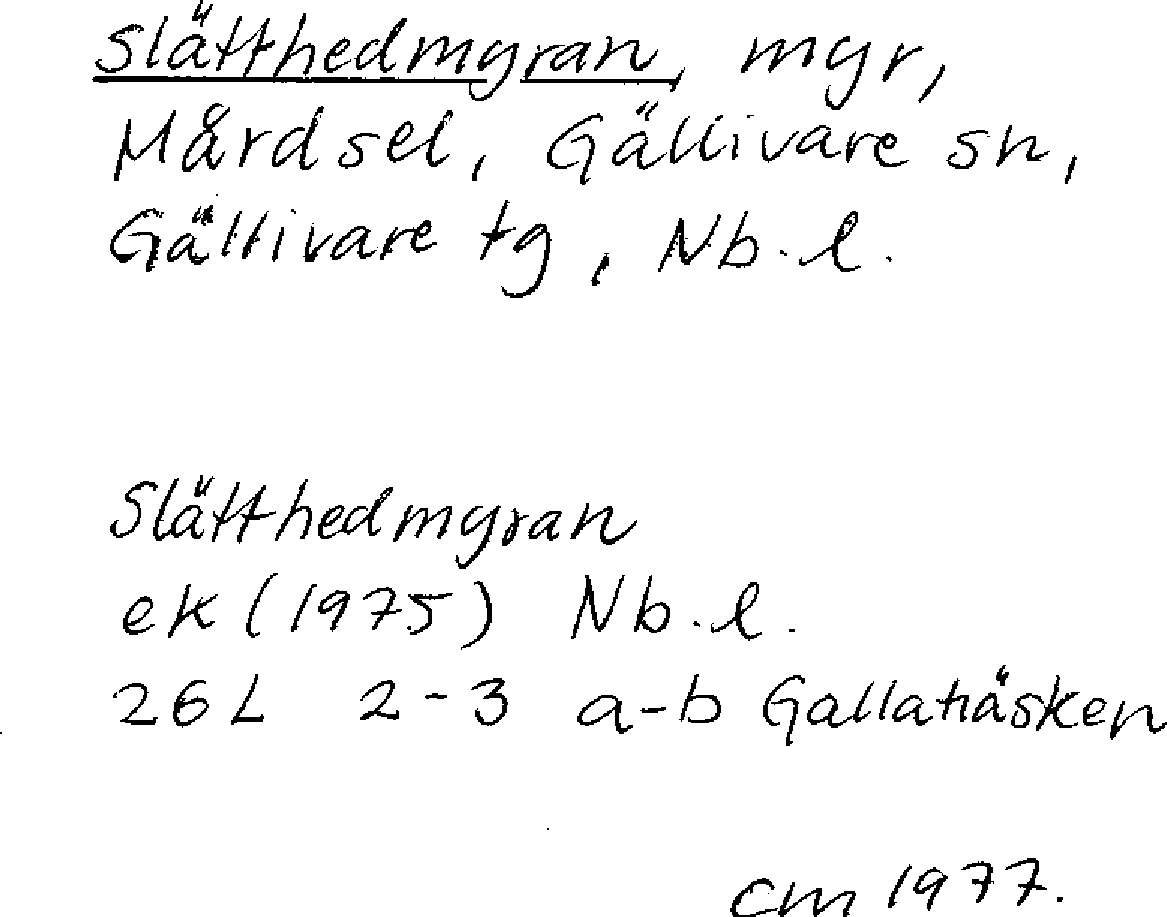 Slätthedmyran, myr,
Mårdsel, Gällivare sn,
Gällivare tg, Nb.l.
Slätthedmyran
ek (1975) Nb.l.
26L 2-3 a-b Gallaträsken
cm 1977.